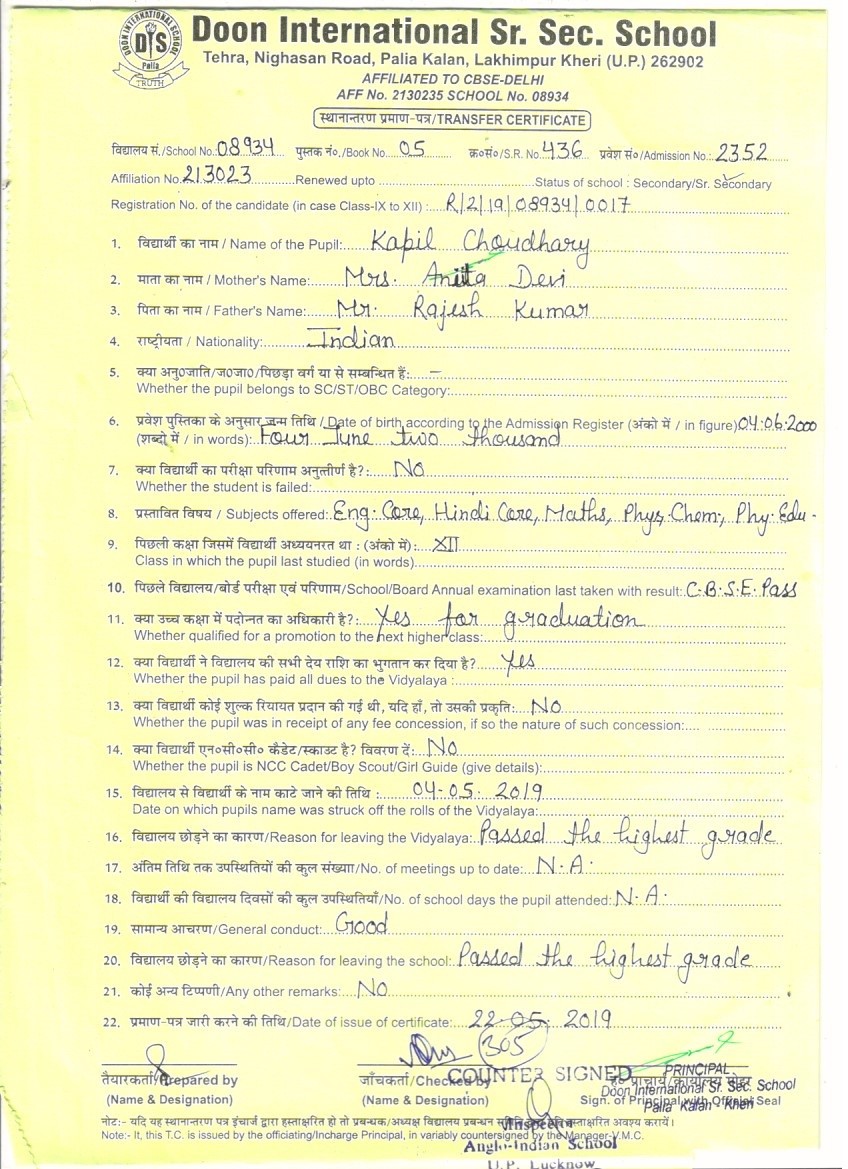 DOON INTERNATIONAL SCHOOL
DIS
Palia
TRUTH
Doon International Sr. Sec. School
Tehra, Nighasan Road, Palia Kalan, Lakhimpur Kheri (U.P.) 262902
AFFILIATED TO CBSE-DELHI
AFF No. 2130235 SCHOOL No. 08934
स्थानान्तरण प्रमाण-पत्र/TRANSFER CERTIFICATE
विद्यालय सं./School No.:08934 पुस्तक नं०./Book No 05 क्र०सं०/S.R. No.436 प्रवेश सं०/Admission No.:2352
Affiliation No.213023 Renewed upto Status of school : Secondary/Sr. Secondary
Registration No. of the candidate (in case Class-IX to XII) : R/2/19/08934/0017
1. विद्यार्थी का नाम / Name of the Pupil: Kapil Choudhary
2. माता का नाम / Mother's Name: Mrs. Anita Devi
3. पिता का नाम / Father's Name: Mr. Rajesh Kumar
4. राष्ट्रीयता / Nationality: Indian
5. क्या अनु०जाति/ज०जा०/पिछड़ा वर्ग या से सम्बन्धित हैः –
Whether the pupil belongs to SC/ST/OBC Category:
6. प्रवेश पुस्तिका के अनुसार जन्म तिथि / Date of birth according to the Admission Register (अंको मे / in figure) 04.06.2000
(शब्दो में / in words): Four June two thousand
7. क्या विद्यार्थी का परीक्षा परिणाम अनुत्तीर्ण है?: No
Whether the student is failed:
8. प्रस्तावित विषय / Subjects offered: Eng. Core, Hindi Core, Maths, Phys, Chem, Phy. Edu -
9. पिछली कक्षा जिसमें विद्यार्थी अध्ययनरत था : (अंको में): XII
Class in which the pupil last studied (in words)
10. पिछले विद्यालय/बोर्ड परीक्षा एवं परिणाम/School/Board Annual examination last taken with result: C.B.S.E. Pass
11. क्या उच्च कक्षा में पदोन्नत का अधिकारी है?: Yes for graduation
Whether qualified for a promotion to the next higher class:
12. क्या विद्यार्थी ने विद्यालय की सभी देय राशि का भुगतान कर दिया है? Yes
Whether the pupil has paid all dues to the Vidyalaya :
13. क्या विद्यार्थी कोई शुल्क रियायत प्रदान की गई थी, यदि हाँ, तो उसकी प्रकृति: No
Whether the pupil was in receipt of any fee concession, if so the nature of such concession:
14. क्या विद्यार्थी एन०सी०सी० कैडेट/स्काउट है? विवरण दें: No
Whether the pupil is NCC Cadet/Boy Scout/Girl Guide (give details):
15. विद्यालय से विद्यार्थी के नाम काटे जाने की तिथि : 04-05. 2019
Date on which pupils name was struck off the rolls of the Vidyalaya:
16. विद्यालय छोड़ने का कारण/Reason for leaving the Vidyalaya: Passed the highest grade
17. अंतिम तिथि तक उपस्थितियों की कुल संख्या/No. of meetings up to date: N.A.
18. विद्यार्थी की विद्यालय दिवसों की कुल उपस्थितियाँ/No. of school days the pupil attended: N.A.
19. सामान्य आचरण/General conduct: Good
20. विद्यालय छोड़ने का कारण/Reason for leaving the school: Passed the highest grade
21. कोई अन्य टिप्पणी/Any other remarks: No
22. प्रमाण-पत्र जारी करने की तिथि/Date of issue of certificate: 22-05. 2019
305
तैयारकर्ता/Prepared by जाँचकर्ता/Checked by COUNTER SIGNED PRINCIPAL
Doon International Sr. Sec. School
Palia Kalan - Kheri
(Name & Designation) (Name & Designation) Sign. of Principal with Official Seal
नोट:- यदि यह स्थानान्तरण पत्र इंचार्ज द्वारा हस्ताक्षरित हो तो प्रबन्धक/अध्यक्ष विद्यालय प्रबन्धन हस्ताक्षरित अवश्य करायें।
Note:- It, this T.C. is issued by the officiating/Incharge Principal, in variably countersigned by the Manager-V.M.C.
Inspector
Anglo-Indian School
U.P. Lucknow